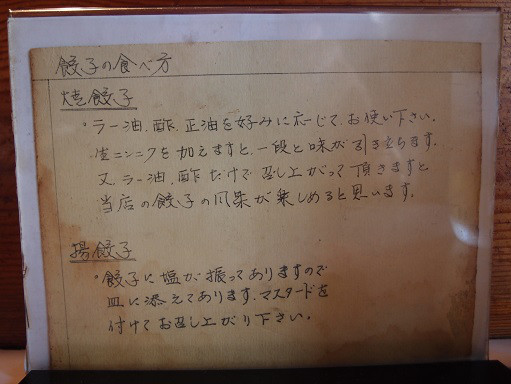 餃子の食べ方
焼餃子
°ラー油、酢、正油を好みに応じて、お使い下さい。
生ニンニクを加えますと、一段と味が引き立ちます。
又、ラー油、酢だけで召し上がって頂きますと
当店の餃子の風味が楽しめると思います。
揚餃子
°餃子に塩が振ってありますので
皿に添えてあります、マスタードを
付けてお召し上がり下さい。